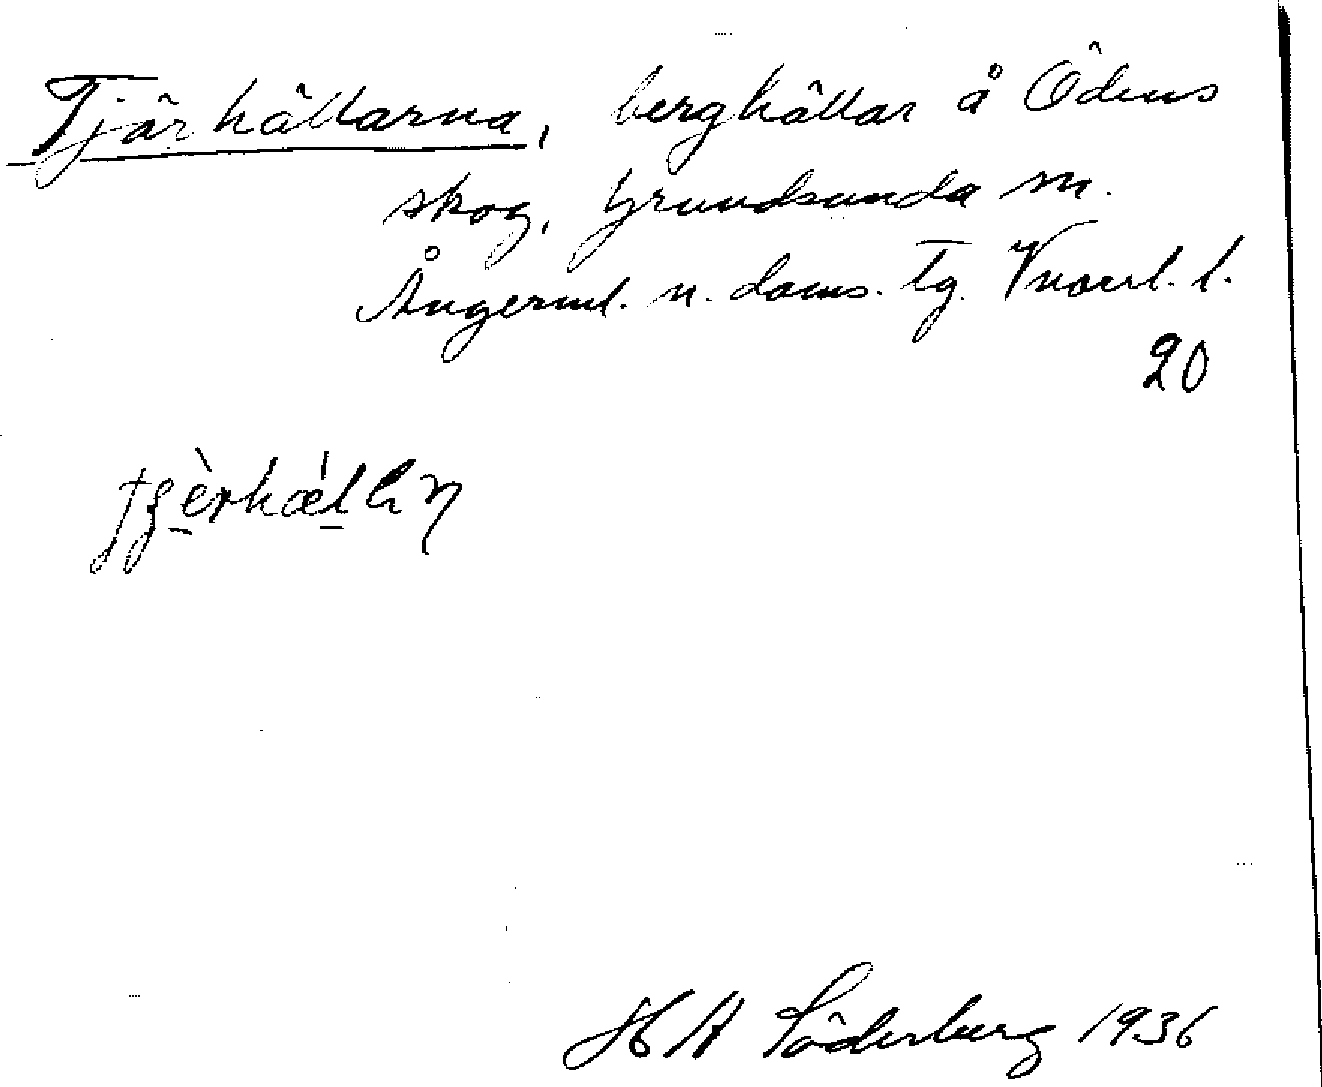 Tjärhällarna, berghällar å Ödens
skog, Grundsunda sn.
Ångerml. n. doms. tg. Vnorrl. l.
20
H A Söderberg 1936